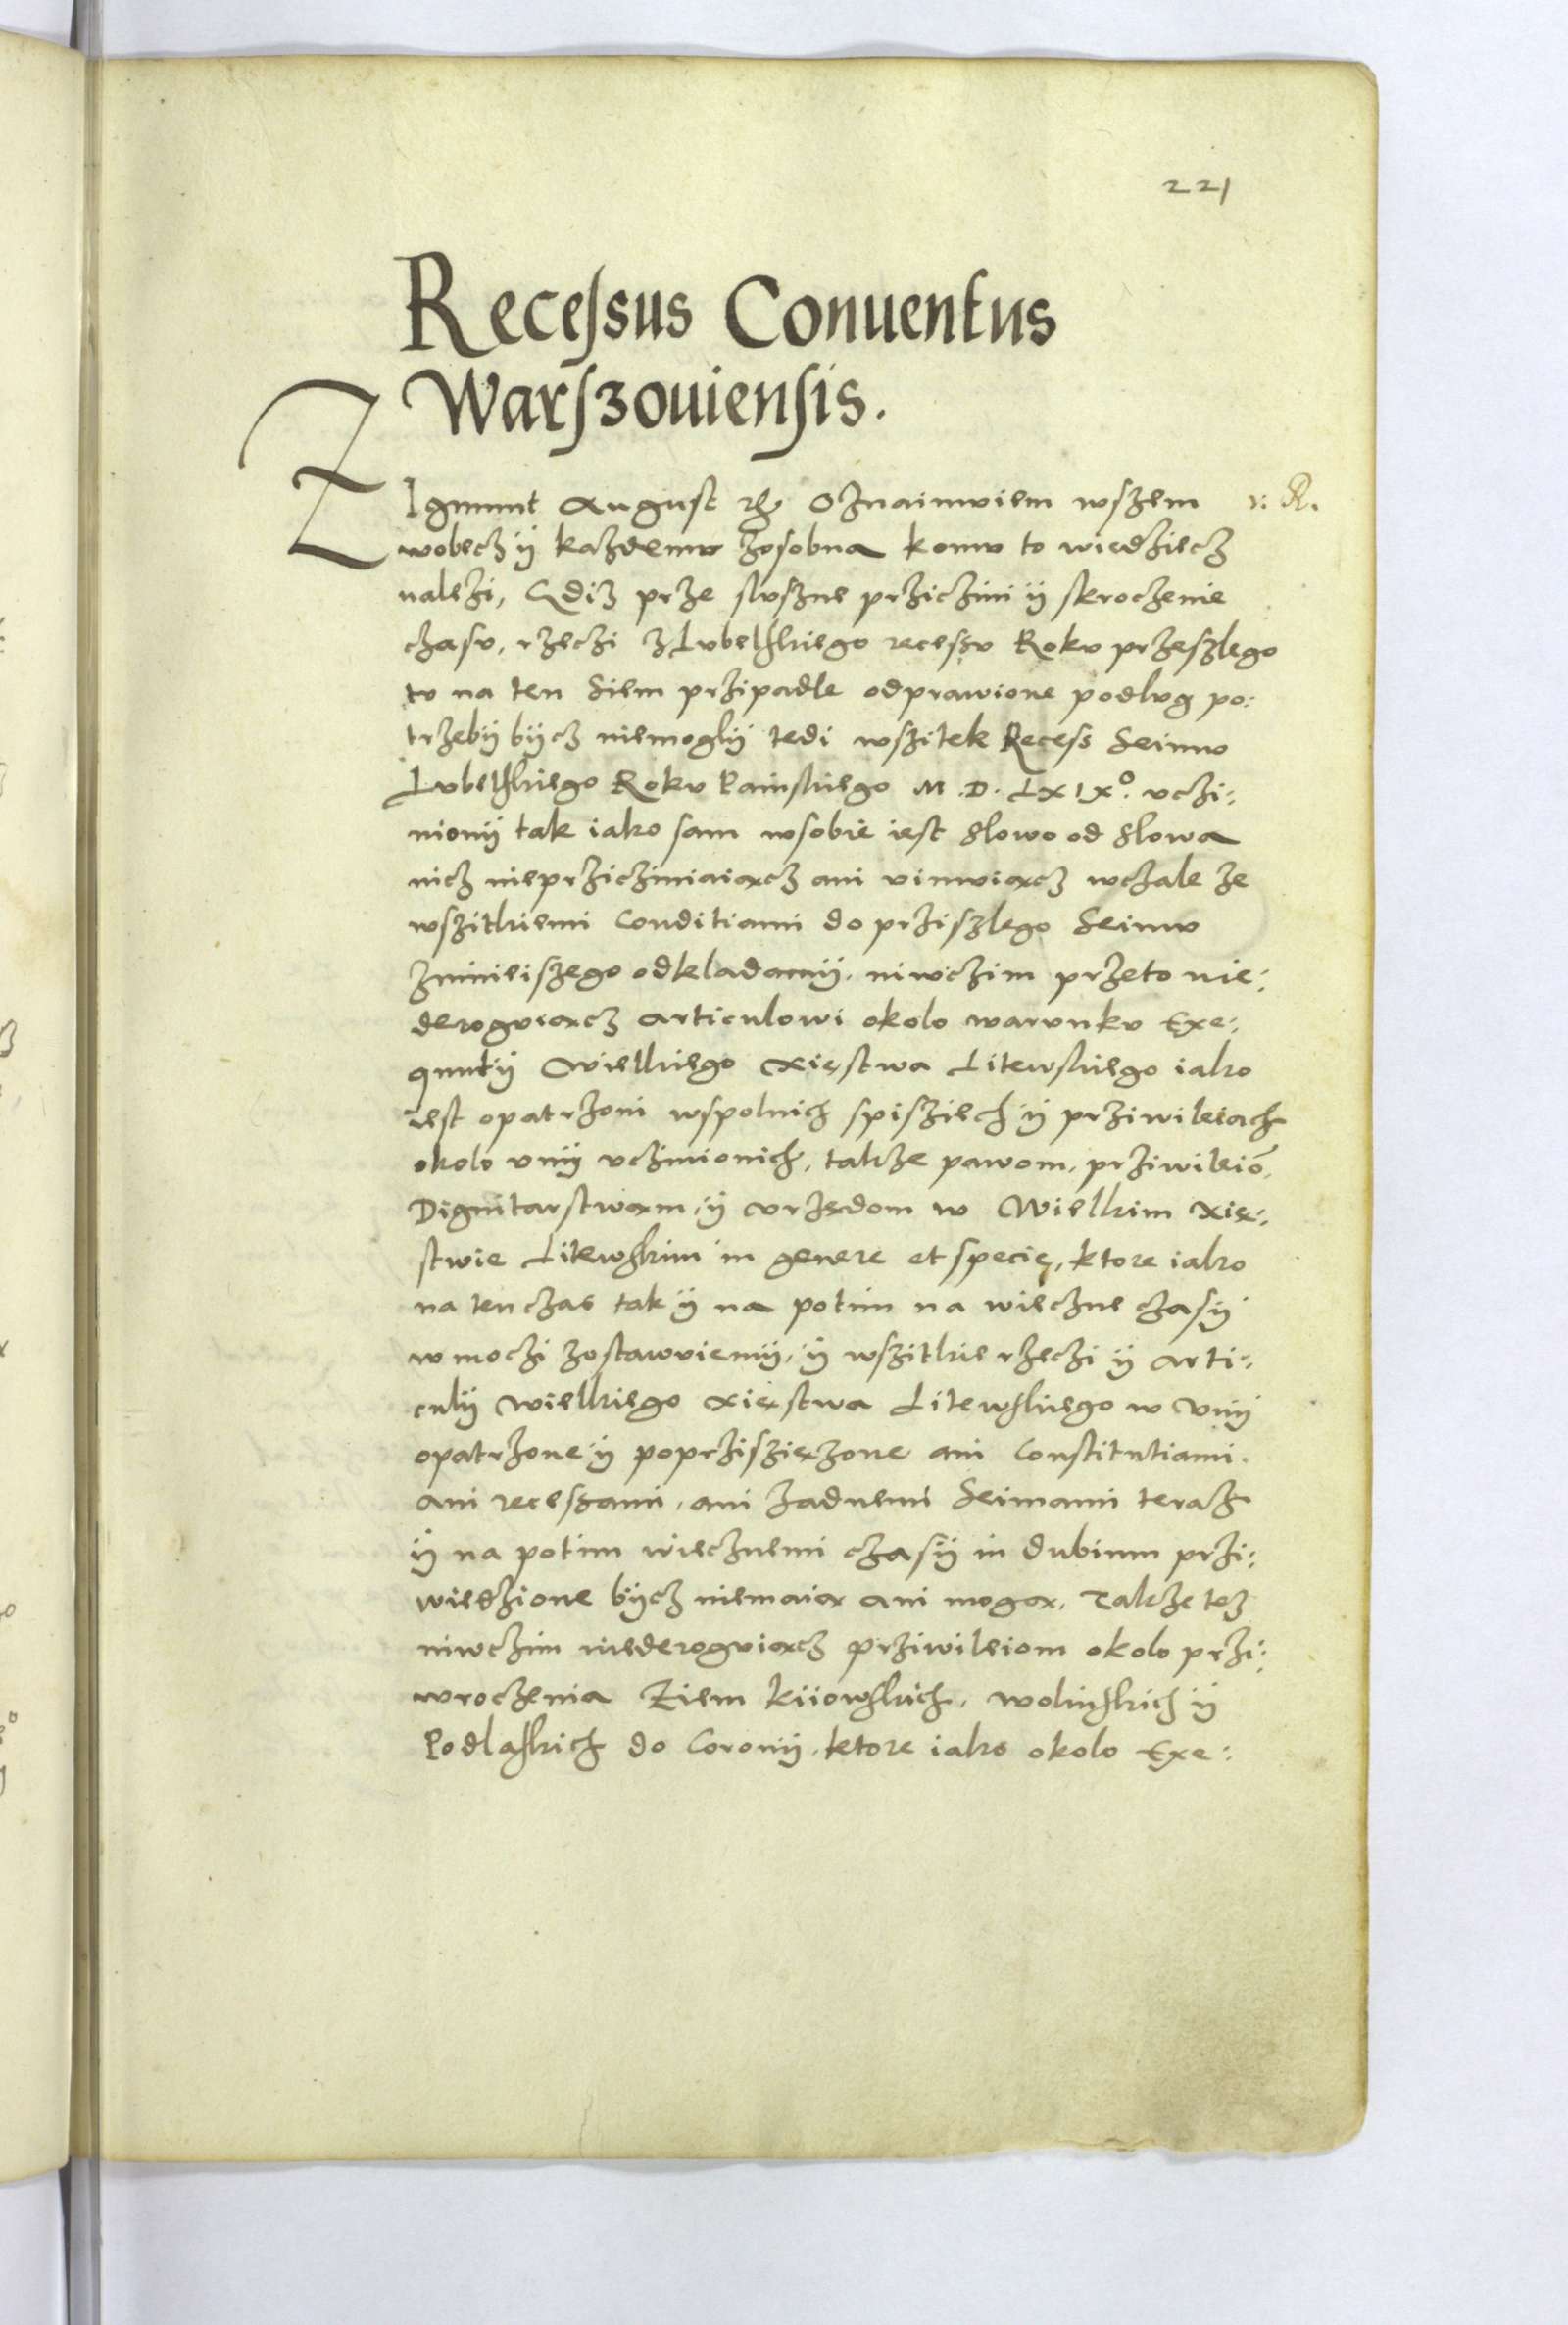 221
Recessus Conuentus
Warszouiensis.
ZIgmunt August etc. Oznaimuiem wszem
wobecz ÿ każdemu zosobna komu to wiedziecz
należi, Gdiż prze slvszne prziczini ÿ skroczenie
czasv, rzeczi z Lvbelskiego recessv Rokv przeszlego
tv na ten Siem przipadle odprawione podlvg po:
trzebÿ bÿcz niemoglÿ tedi wszitek Recess Seimv
Lvbelskiego Rokv Painskiego M.D.LXIXº. vczi:
nionÿ tak iako sam wsobie iest slowo od slowa
nicz nieprzicziniaiącz ani vimviącz wczale ze
wszitkiemi Conditiami do prziszlego Seimv
zinieiszego odkladamÿ. niwczim przeto nie:
derogviącz articulowi okolo warvnkv Exe:
quutÿ Wielkiego Xięstwa Litewskiego iako
iest opatrzoni wspolnich spisziech ÿ prziwileiach
okolo vnÿ vczinionich, takze pawom, prziwileiō,
Dignitarstwam, ÿ vrzędom w Wielkim Xię:
stwie Litewskim in genere et specie, ktore iako
na ten czas tak ÿ na potim na wieczne czasÿ
w moczi zostawuiemÿ, ÿ wszitkie rzeczi ÿ arti:
culÿ wielkiego xięstwa Litewskiego w Vnÿ
opatrzone ÿ poprzisziężone ani Constitutiami.
ani recessami, ani żadnemi Seimami teraz
ÿ na potim wiecznemi czasÿ in dubium przi:
wiedzione bÿcz niemaią ani mogą. Takze też
niwczim niederogviącz prziwileiom okolo przi:
wroczenia Ziem kiiowskich, wolinskich ÿ
Podlaskich do Coronÿ, ktore iako okolo Exe: